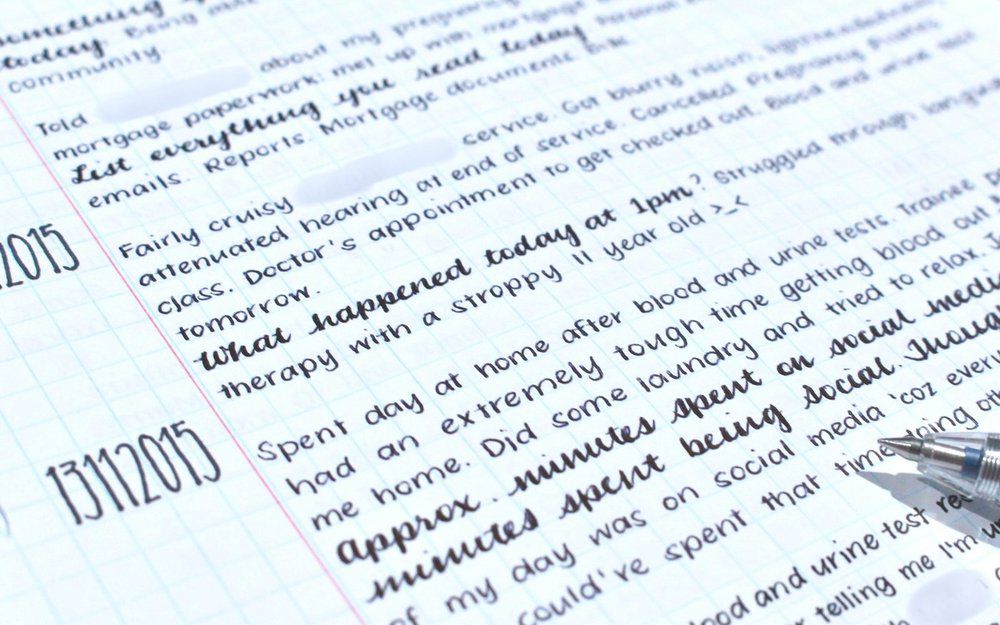 something
today. Being
community
Told about my pregnancy
mortgage paperwork: met up with mortgage
List everything you read today Personal
emails. Reports. Mortgage documents.
Fairly cruisy service. Got blurry vision, lightheadedness
attenuated hearing at end of service. Cancelled Pregnancy Pilates
class. Doctor's appointment to get checked out. Blood and urine test
tomorrow.
What happened today at 1pm? Struggled through language
therapy with a stroppy 11 year old >_<
2015
13112015
Spent day at home after blood and urine tests. Trainee
had an extremely tough time getting blood out
me home. Did some laundry and tried to relax.
approx. minutes spent on social media
minutes spent being social. Though
of my day was on social media 'coz every
could've spent that time doing
blood and urine test
telling me I'm